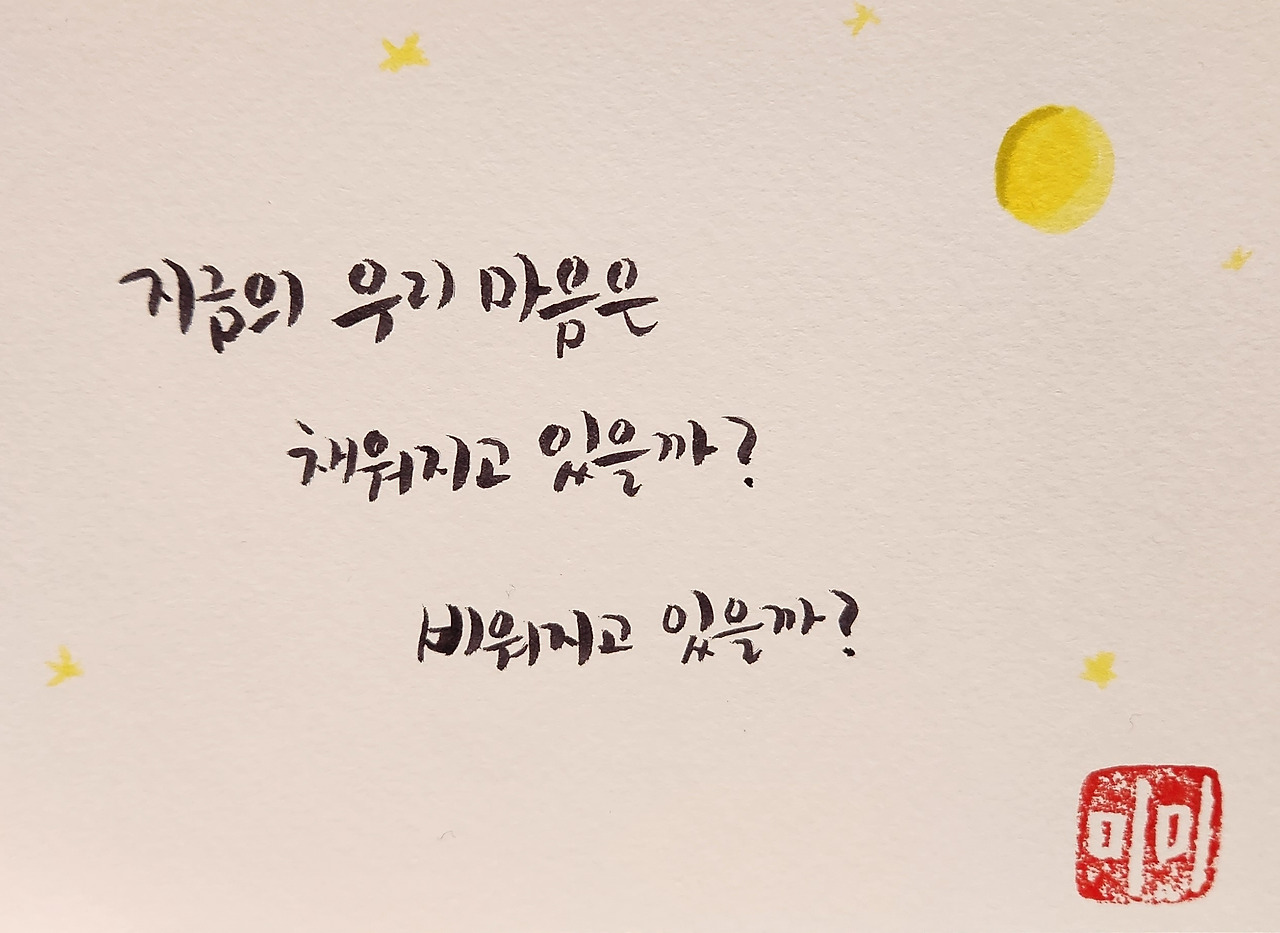 지금의 우리 마음은
채워지고 있을까?
비워지고 있을까?
미미